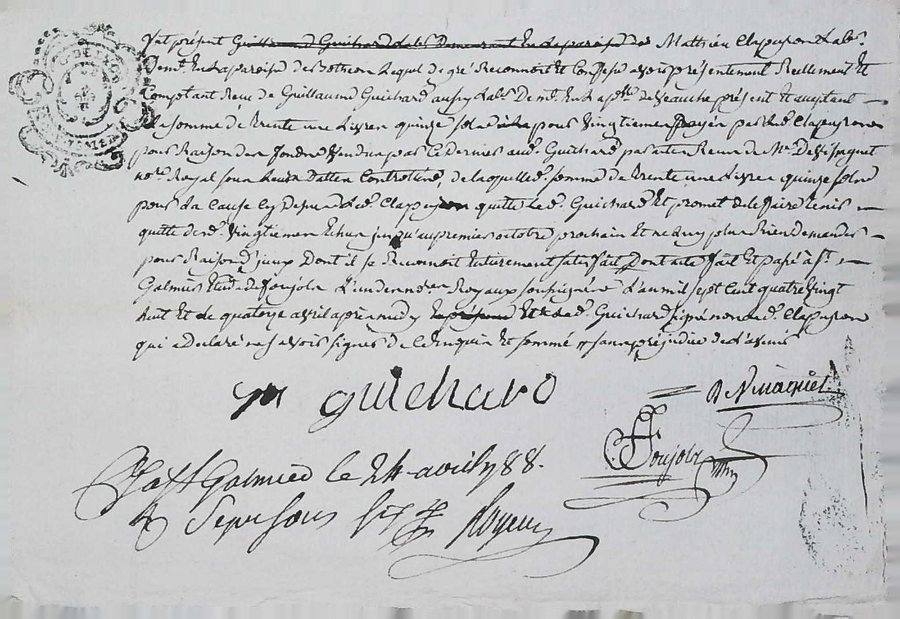 fut présent Guillaume Guichard Lab. Demeurant En La paroisse de Mathieu Clapeyron Lab.
Dem. En La paroisse de Lequel de gré Reconnoit Et Confesse avoir présentement Reellement Et
Comptant Receu de Guillaume Guichard aussy Lab. Dem. En La p. de Veauche présent Et acceptant
La somme de trente une Livres quinze sols pour Vingtiemes payés par Led. Clapeyron
pour Raison des fondre Vendus par Ce dernier aud. Guichard par acte Receu de Me
no.re Royal sous Leurs dattes Controllés, de laquelle d. somme de trente une Livres quinze sols
pour La Cause Cy Dessus Led. Clapeyron quitte Led. Guichard Et promet de le faire tenir
quitte desd. Vingtiemes Echus jusqu'au premier octobre prochain Et ne luy plus Rien demander
pour Raison d'jceux Dont il se Reconnoit Entierement satisfait Dont acte fait Et passé a St.
Galmier Etude de Foujols L'un des no.res Royaux soussignés L'an mil sept Cent quatre Vingt
huit Et Le quatorze avril après midy Et Led. Guichard signé non Led. Clapeyron
qui a Declaré ne sçavoir signer de Ce Enquis Et sommé sans préjudice de L'avenir
guichard
Foujols
a St Galmier le 24 avril 1788.
R sept sous six d. Royeur